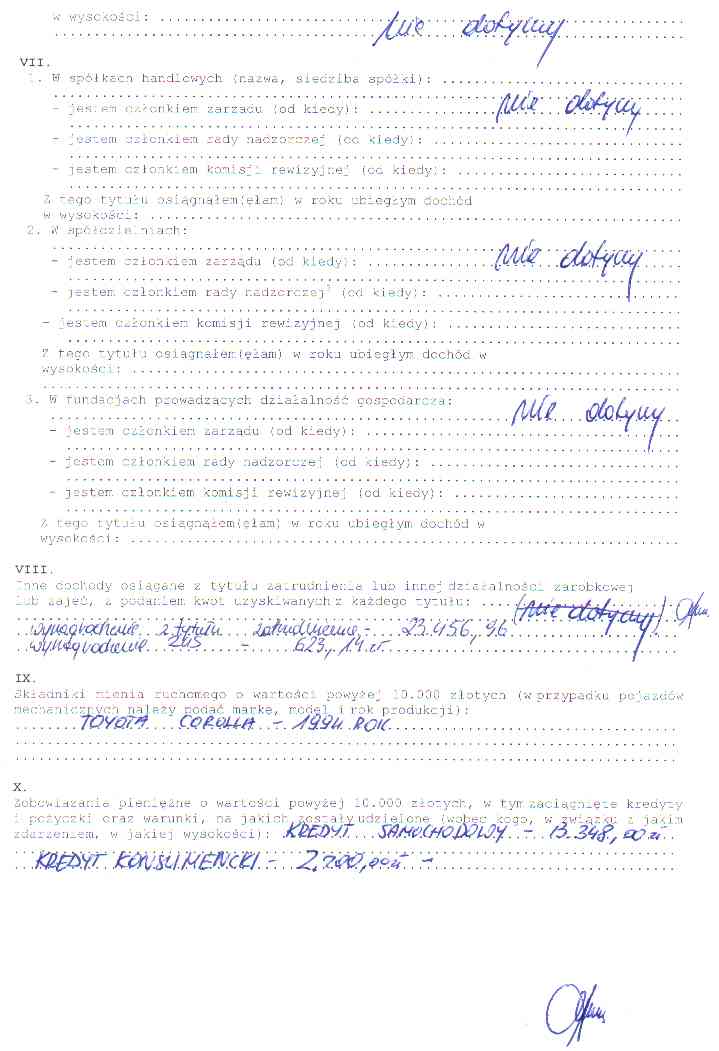 w wysokości: ........................................
nie dotyczy
VII.
1. W spółkach handlowych (nazwa, siedziba spółki): ........................................
- jestem członkiem zarządu (od kiedy): ........................................ nie dotyczy
- jestem członkiem rady nadzorczej (od kiedy): ........................................
- jestem członkiem komisji rewizyjnej (od kiedy): ........................................
Z tego tytułu osiągnąłem(ęłam) w roku ubiegłym dochód
w wysokości: ........................................
2. W spółdzielniach:
- jestem członkiem zarządu (od kiedy): ........................................ nie dotyczy
- jestem członkiem rady nadzorczej³ (od kiedy): ........................................
- jestem członkiem komisji rewizyjnej (od kiedy): ........................................
Z tego tytułu osiągnąłem(ęłam) w roku ubiegłym dochód w
wysokości: ........................................
3. W fundacjach prowadzących działalność gospodarczą:
nie dotyczy
- jestem członkiem zarządu (od kiedy): ........................................
- jestem członkiem rady nadzorczej (od kiedy): ........................................
- jestem członkiem komisji rewizyjnej (od kiedy): ........................................
Z tego tytułu osiągnąłem(ęłam) w roku ubiegłym dochód w
wysokości: ........................................
VIII.
Inne dochody osiągane z tytułu zatrudnienia lub innej działalności zarobkowej
lub zajęć, z podaniem kwot uzyskiwanych z każdego tytułu: .... (nie dotyczy)
wynagrodzenie z tytułu zatrudnienia - 23.456,96
wynagrodzenie ZUS - 623,14 zł
IX.
Składniki mienia ruchomego o wartości powyżej 10.000 złotych (w przypadku pojazdów
mechanicznych należy podać markę, model i rok produkcji):
TOYOTA COROLLA - 1994 ROK
X.
Zobowiązania pieniężne o wartości powyżej 10.000 złotych, w tym zaciągnięte kredyty
i pożyczki oraz warunki, na jakich zostały udzielone (wobec kogo, w związku z jakim
zdarzeniem, w jakiej wysokości): KREDYT SAMOCHODOWY - 13.348,00 zł
KREDYT KONSUMENCKI - 2.200,00 zł -